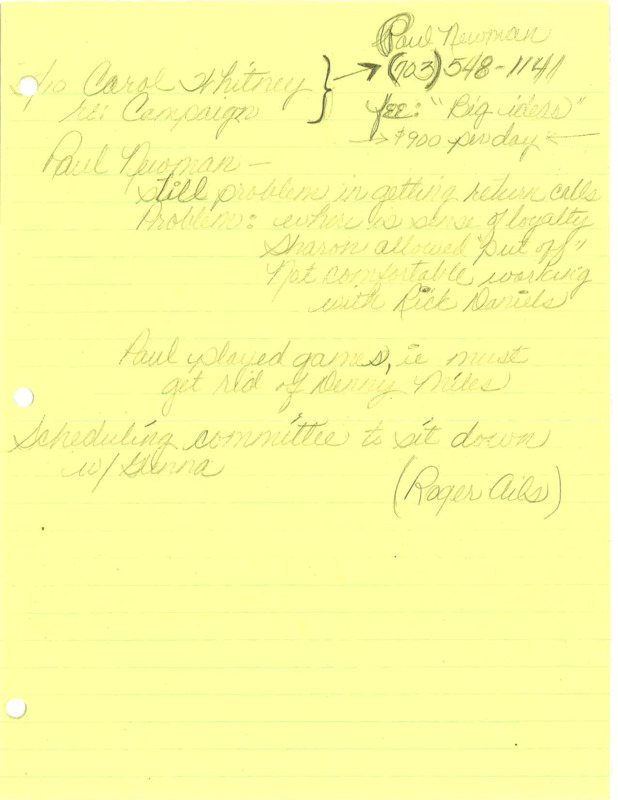 Paul Newman
c/o Carol Whitney } → (703) 548-1141
re: Campaign
Fee: "Big ideas"
→ $900 per day ←
Paul Newman —
still problem in getting return calls
Problem: where is sense of loyalty
Sharon allowed "put off"
Not comfortable working
with Rick Daniels
Paul played games, ie must
get rid of Denny Miles
Scheduling committee to sit down
w/
(Roger Ailes)